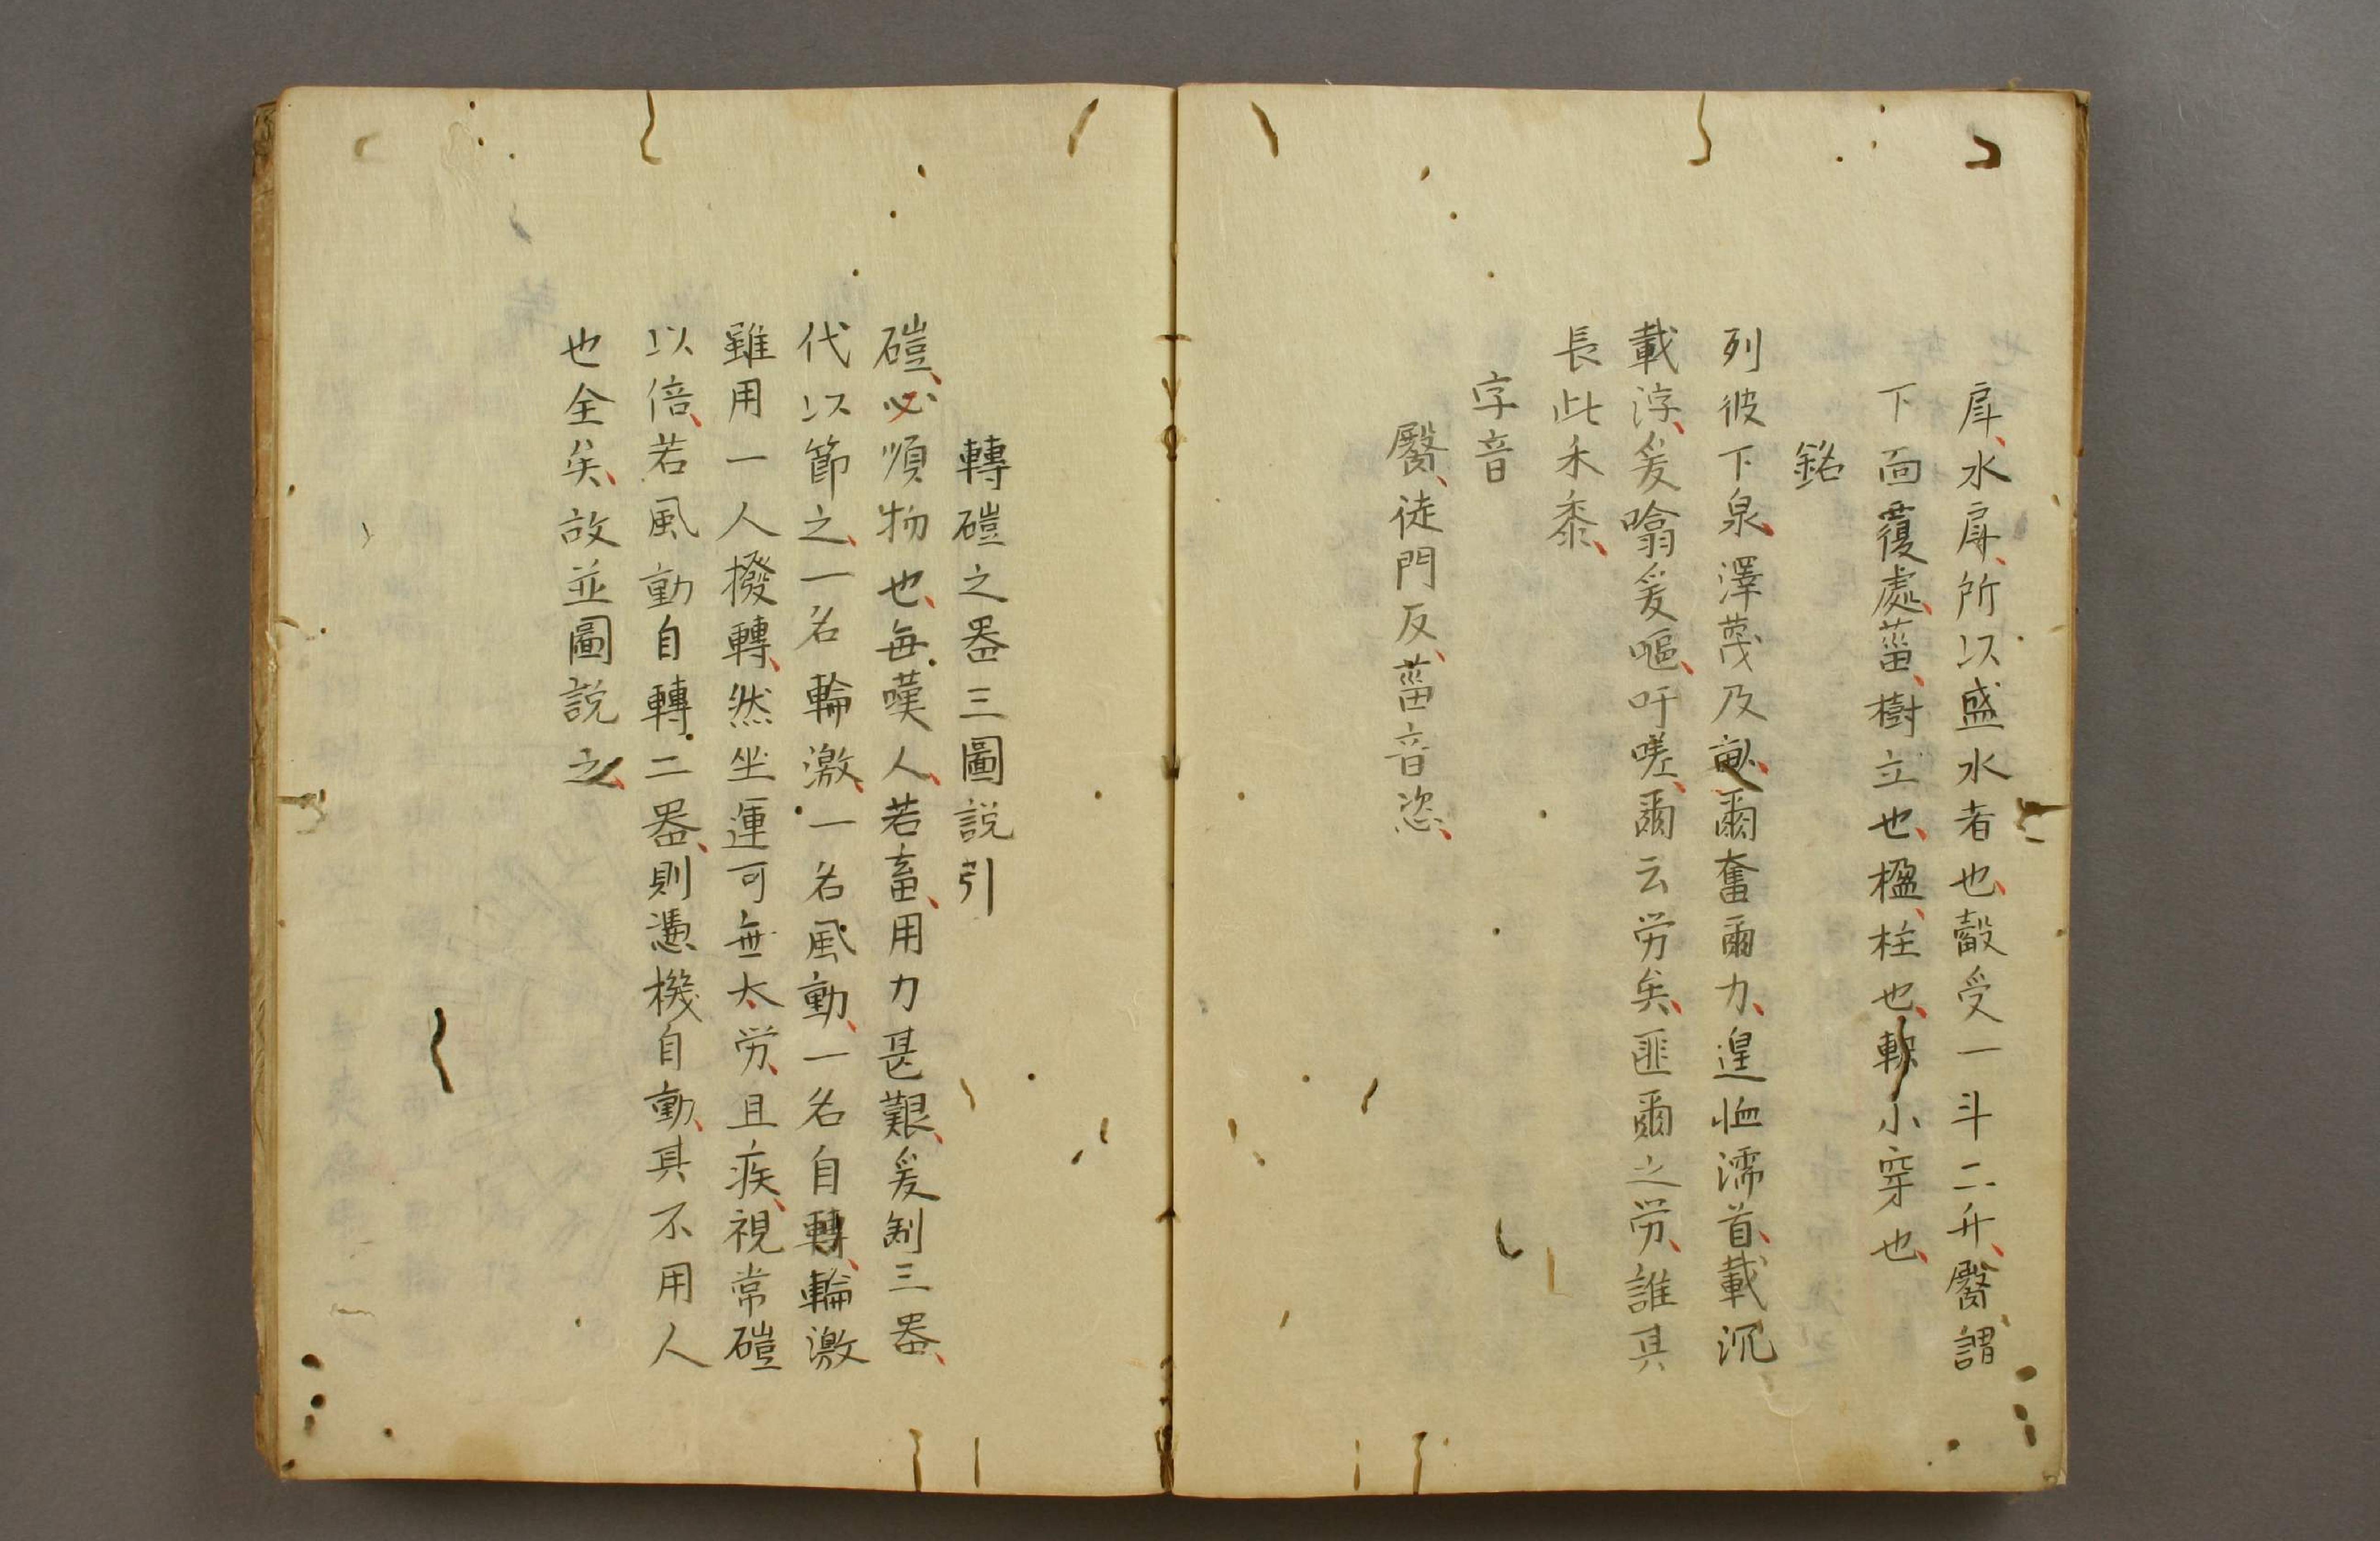 戽、水戽、所以盛水者也、㲄受一斗二升、臋、謂
下面覆處、菑、樹立也、楹、柱也、軹小穿也、
銘
列彼下泉、澤茂及畝、爾奮爾力、遑恤濡首、載沉
載浮、爰噏爰嘔、吁嗟、爾云労矣、匪爾之労、誰其
長此禾黍、
字音
臋、徒門反、菑音恣、
轉磑之器三圖説引
磑、必須物也、每嘆人、若畜、用力甚艱、爰制三器、
代以節之、一名輪激、一名風動、一名自轉、輪激
雖用一人撥轉、然坐運可無太労、且疾、視常磑
以倍、若風動自轉二器、則憑機自動、其不用人
也全矣、故並圖説之、